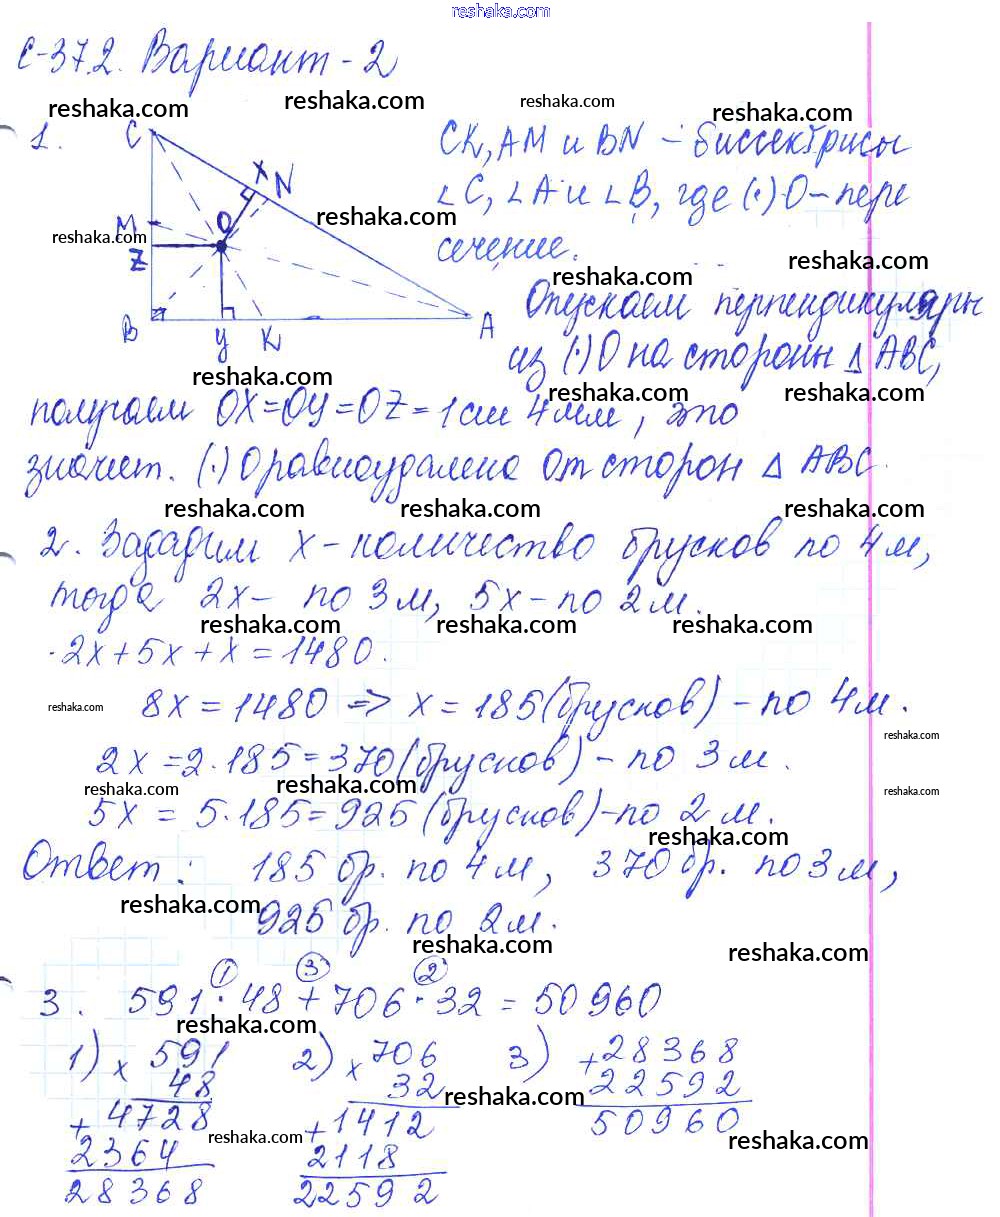 reshaka.com
С-37.2. Вариант - 2
reshaka.com reshaka.com reshaka.com reshaka.com
1. C X N M O Z B Y K A
CK, AM и BN - биссектрисы
∠C, ∠A и ∠B, где (·) O - пере
reshaka.com reshaka.com
сечение.
reshaka.com reshaka.com
Опускаем перпендикуляры
из (·) O на стороны Δ ABC,
reshaka.com reshaka.com reshaka.com
получаем OX=OY=OZ=1см 4мм, это
значит. (·) O равноудалена от сторон Δ ABC.
reshaka.com reshaka.com reshaka.com
2. Зададим x - количество брусков по 4 м,
тогда 2x - по 3 м, 5x - по 2 м.
reshaka.com reshaka.com reshaka.com
2x + 5x + x = 1480.
8x = 1480 => x = 185 (брусков) - по 4 м.
reshaka.com reshaka.com
2x = 2 · 185 = 370 (брусков) - по 3 м.
reshaka.com reshaka.com reshaka.com
5x = 5 · 185 = 925 (брусков) - по 2 м.
reshaka.com
Ответ: 185 бр. по 4 м, 370 бр. по 3 м,
reshaka.com
925 бр. по 2 м.
reshaka.com reshaka.com
1 3 2
3. 591 · 48 + 706 · 32 = 50960
reshaka.com
1) × 591 2) × 706 3) + 28368
48 32 22592
reshaka.com
+ 4728 + 1412 50960
reshaka.com reshaka.com
2364 2118
28368 22592